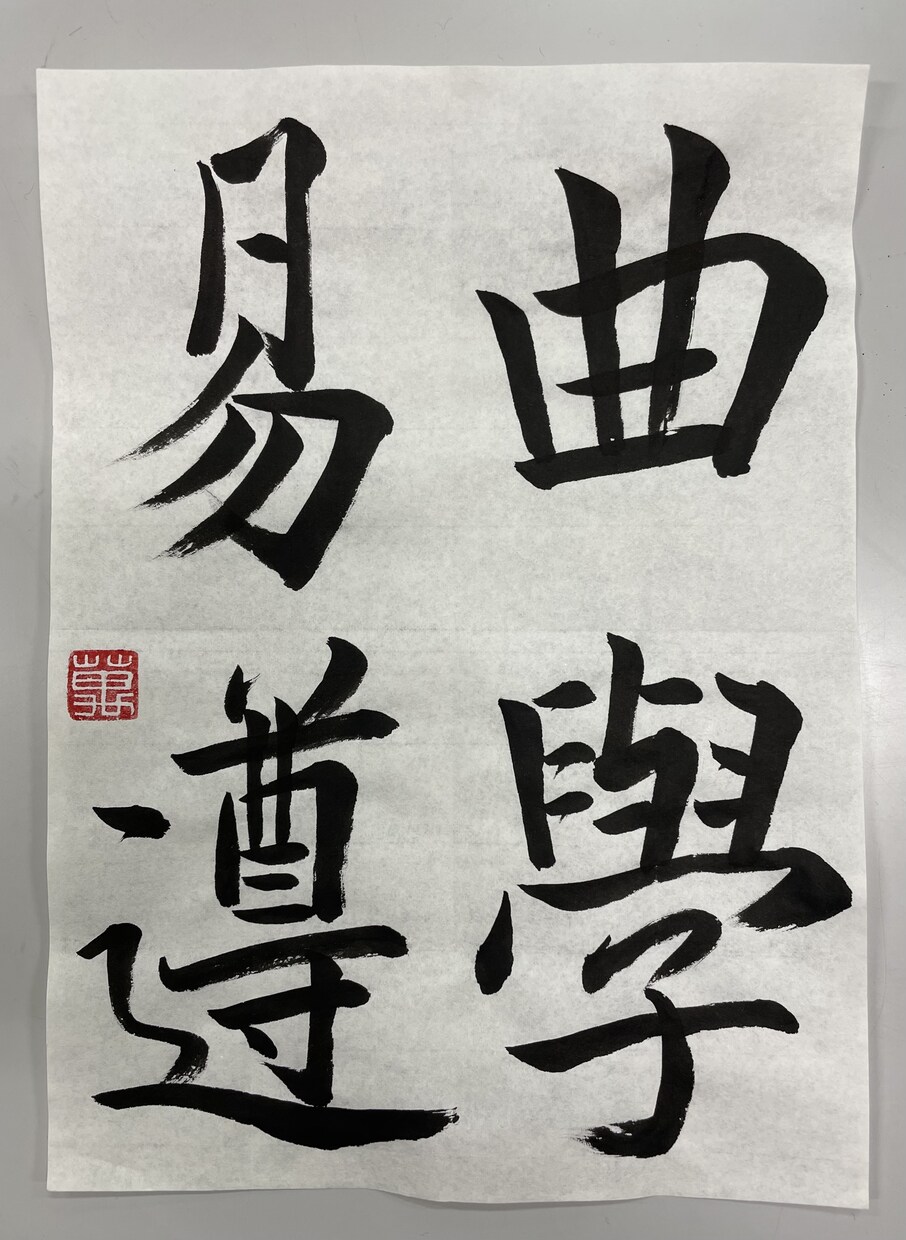 曲學
易遵
萬